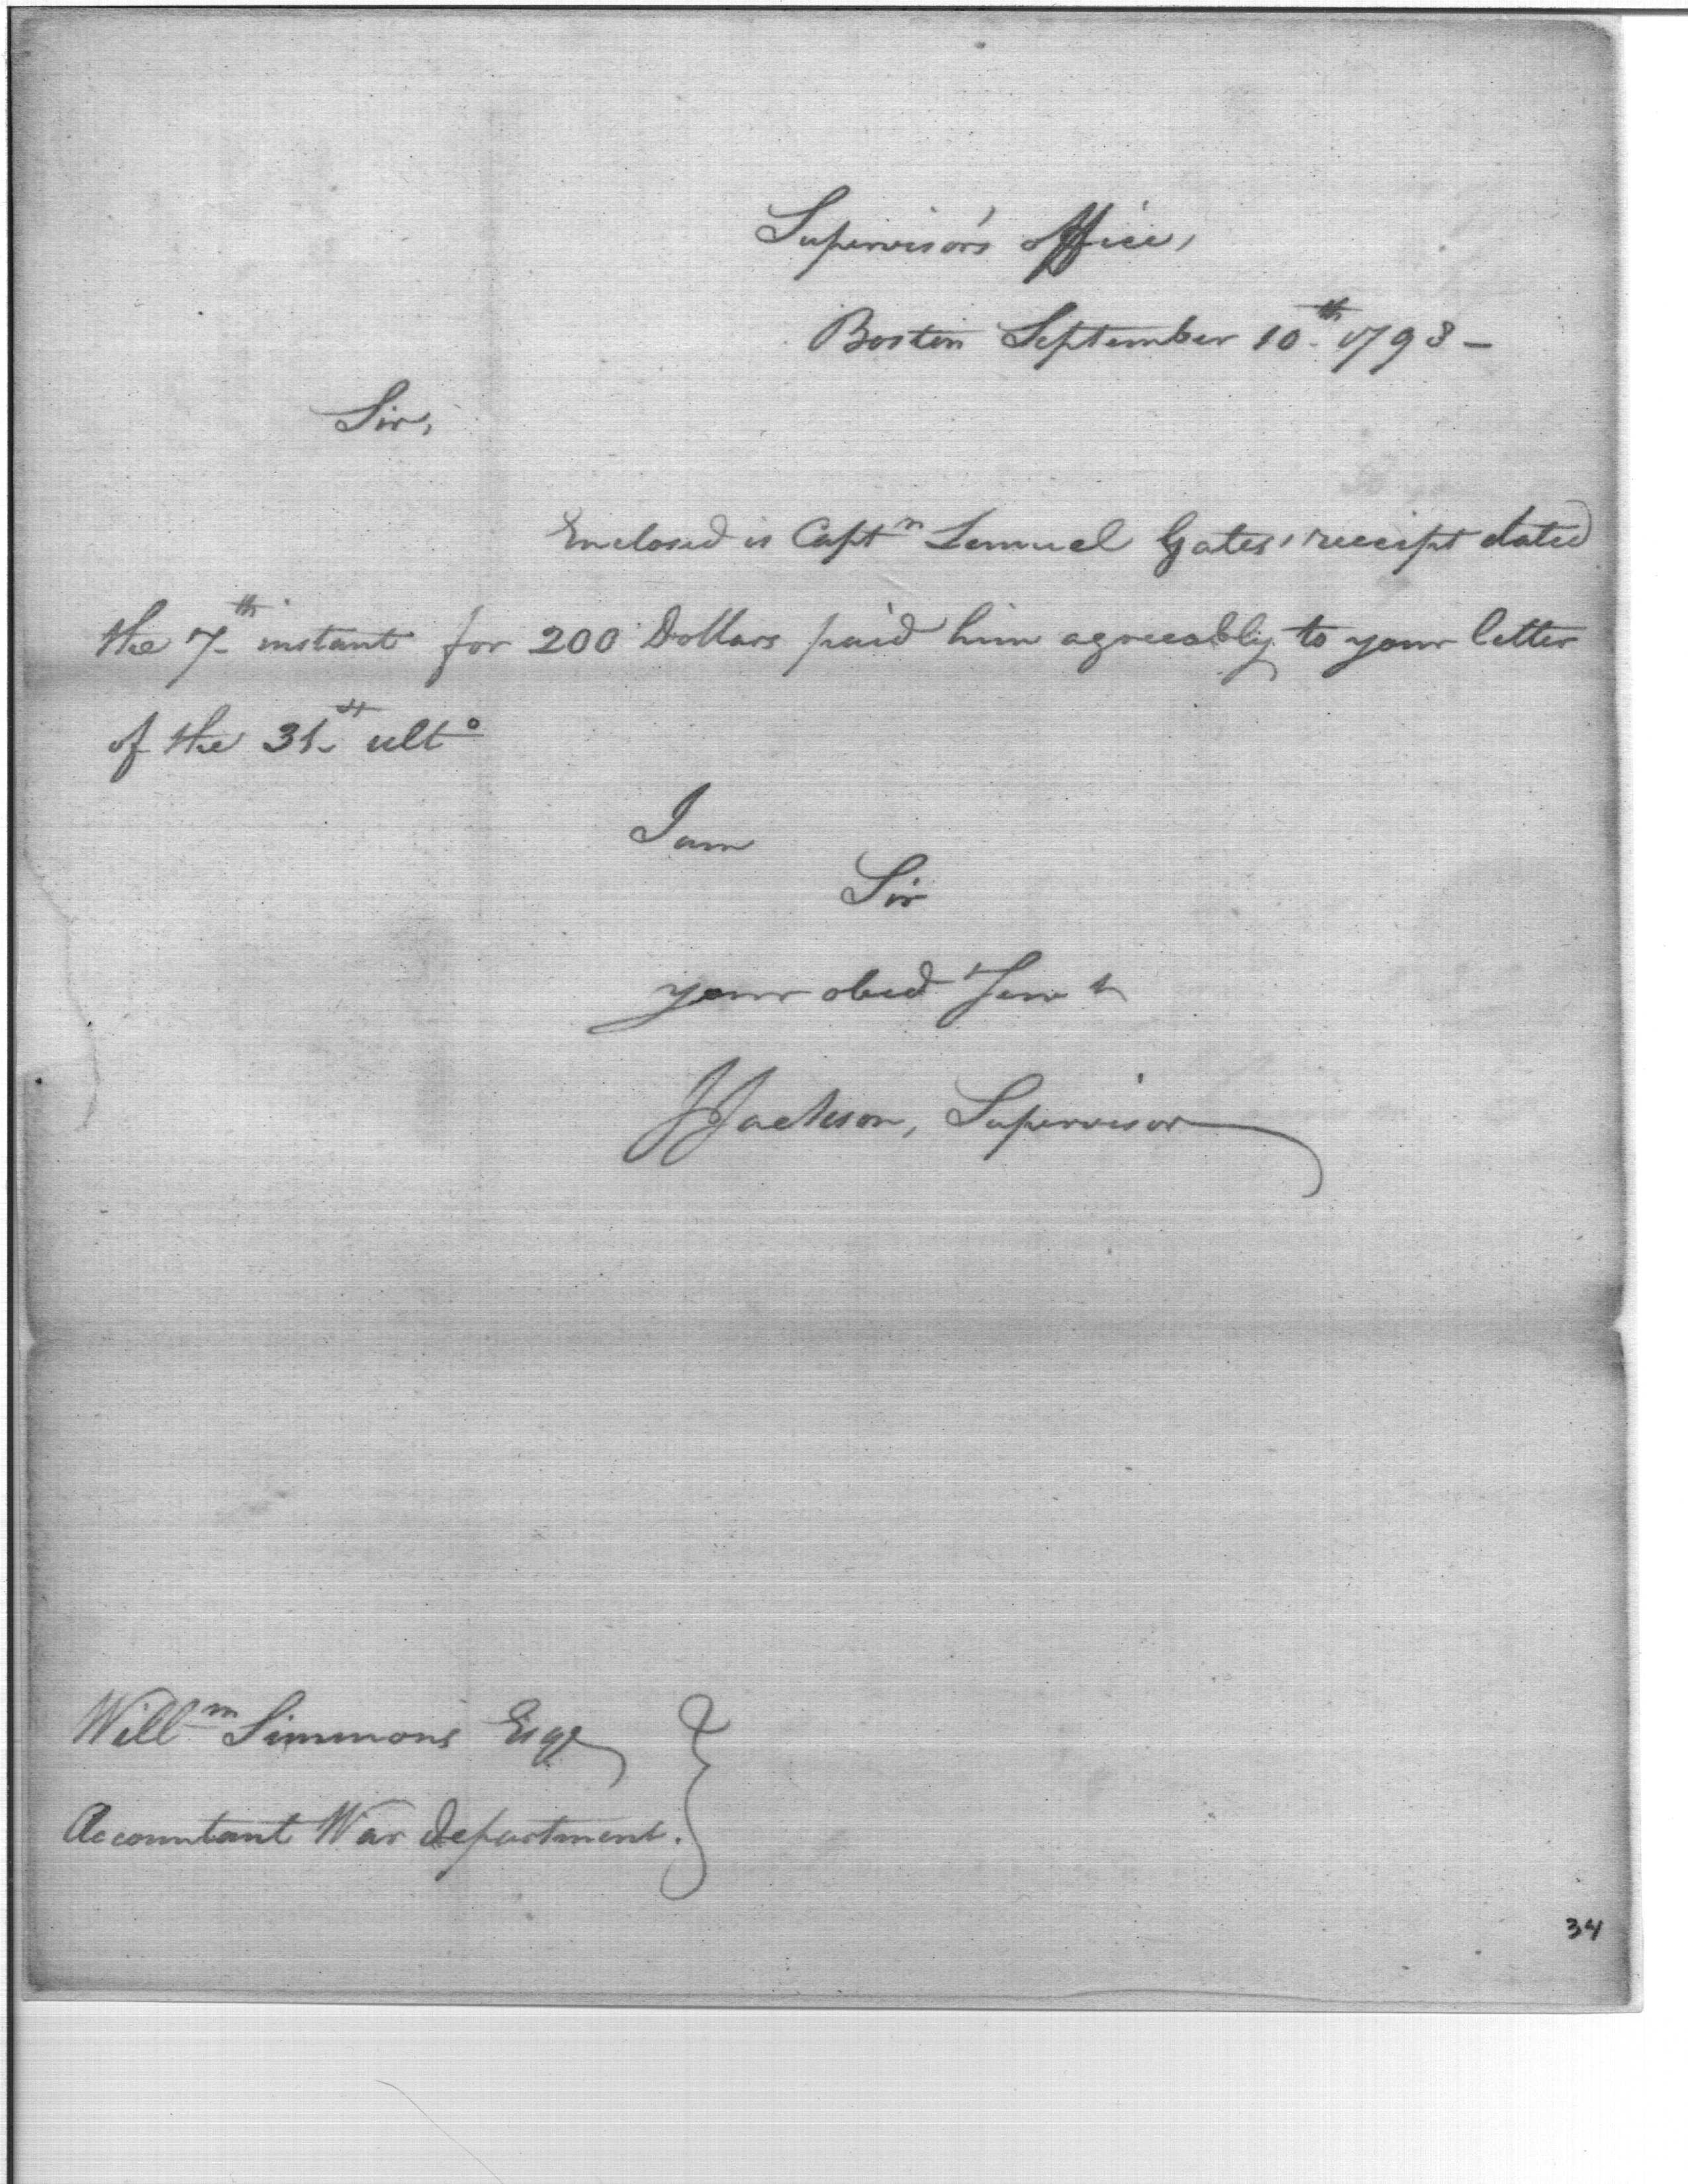 Supervisor's office,
Boston September 10th 1798 -
Sir,
Enclosed is Captn Lemuel Gates' receipt dated
the 7th instant for 200 Dollars paid him agreeably to your letter
of the 31st ulto
I am
Sir
your obed Servt
J Jackson, Supervisor
Willm Simmons Esqr
Accountant War department.
34